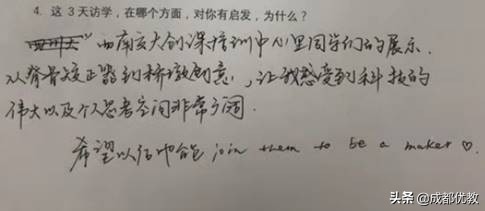 4. 这3天访学，在哪个方面，对你有启发，为什么？
西南交大创课培训中心里同学们的展示.
从脊骨校正器到桥墩创意，让我感受到科技的
伟大以及个人思考空间非常广阔.
希望以后也能 join them to be a maker ♡.
头条 @成都优教